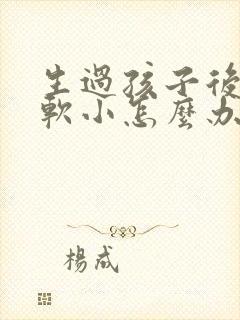 生過孩子後
軟小怎麼办
楊成